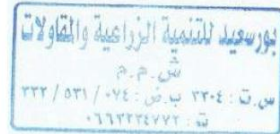 بورسعيد للتنمية الزراعية والمقاولات
ش.م.م
س.ت : ٣٣٠٤ ب.ض : ٠٧٤ / ٥٣١ / ٣٣٣
ت : ٠٦٦٣٣٤٧٧٢